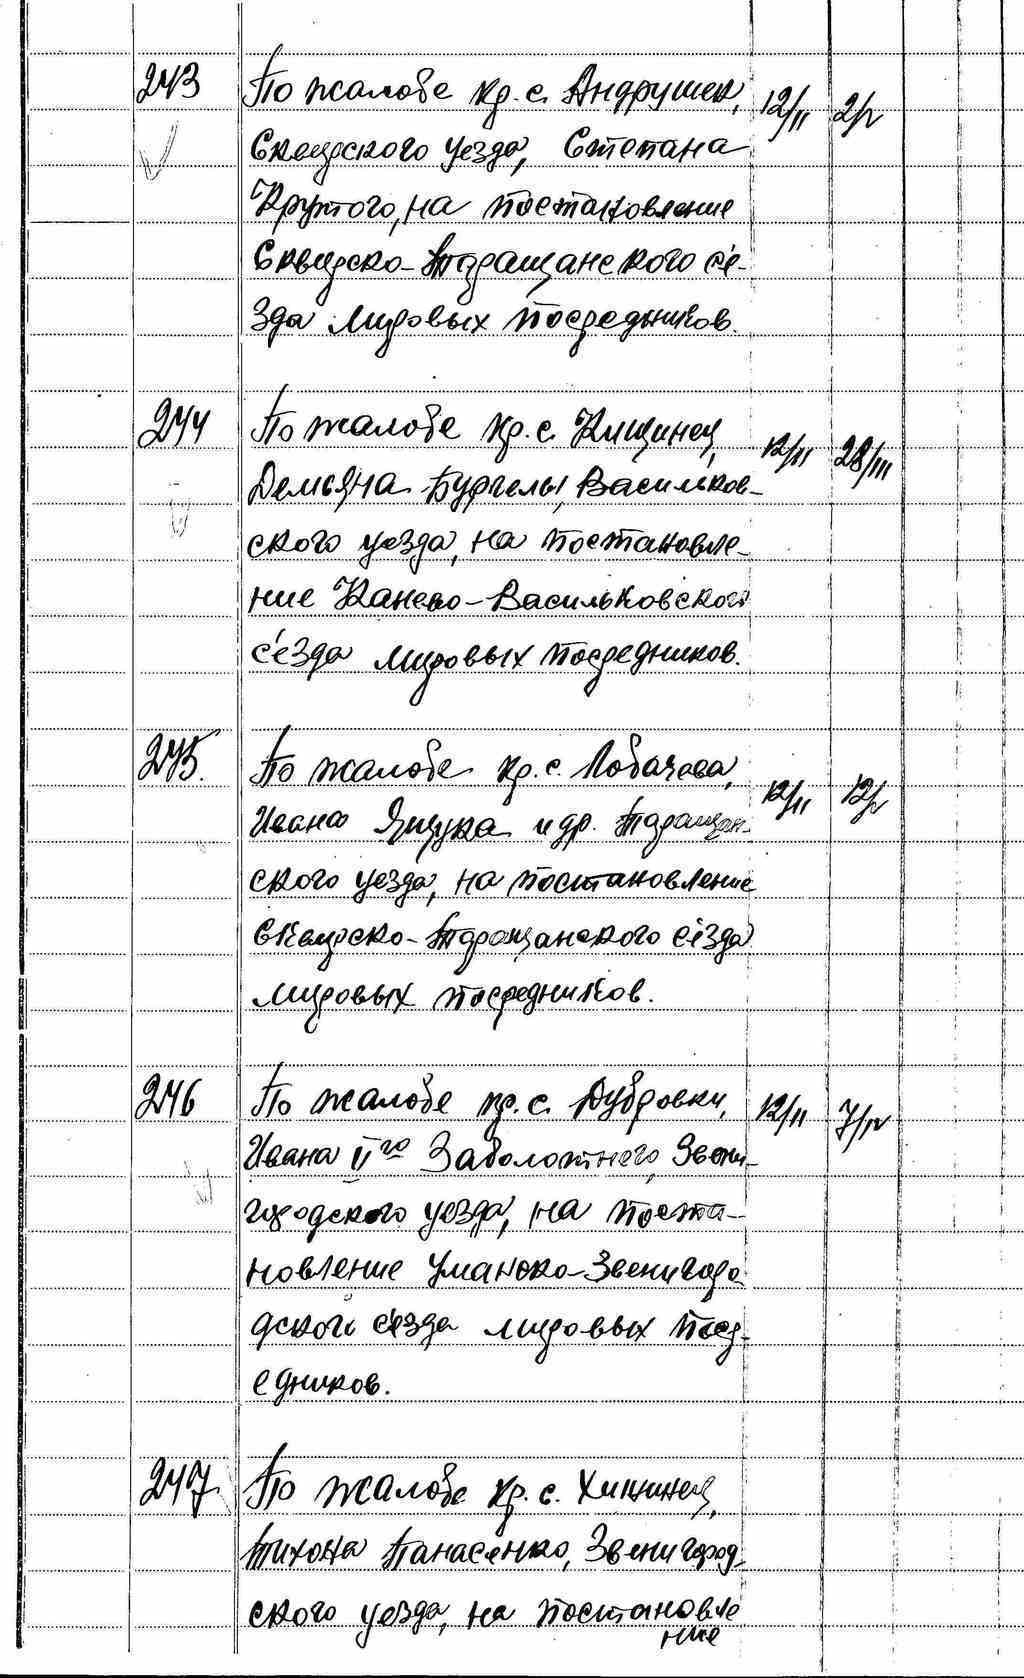 243 По жалобе кр. с. Андрушек, 12/II 2/V
Сквирского уезда, Степана
Крутого, на постановление
Сквирско-Таращанского с'е-
зда мировых посредников.
244 По жалобе кр. с. Кищинец, 12/II 28/III
Демьяна Бургелы, Васильков-
ского уезда, на постановле-
ние Канево-Васильковского
с'езда мировых посредников.
245. По жалобе кр. с. Лобачева, 12/II 12/V
Ивана Ящука и др. Таращан-
ского уезда, на постановление
Сквирско-Таращанского с'езда
мировых посредников.
246 По жалобе кр. с. Дубровки, 12/II 7/IV
Ивана IIго Заболотнего, Звени-
городского уезда, на поста-
новление Уманско-Звенигоро
дского с'езда мировых поср-
едников.
247 По жалобе кр. с. Хищинец,
Тихона Панасенко, Звенигород-
ского уезда, на постановле
ние